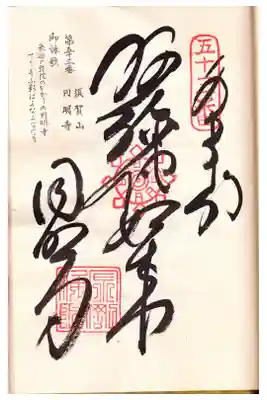 五十三番
奉納
阿弥陀如来
圓明寺
第五十三番 須賀山 円明寺
御詠歌
来迎の弥陀のひかりの円明寺
てりそふ影はよなよなの月